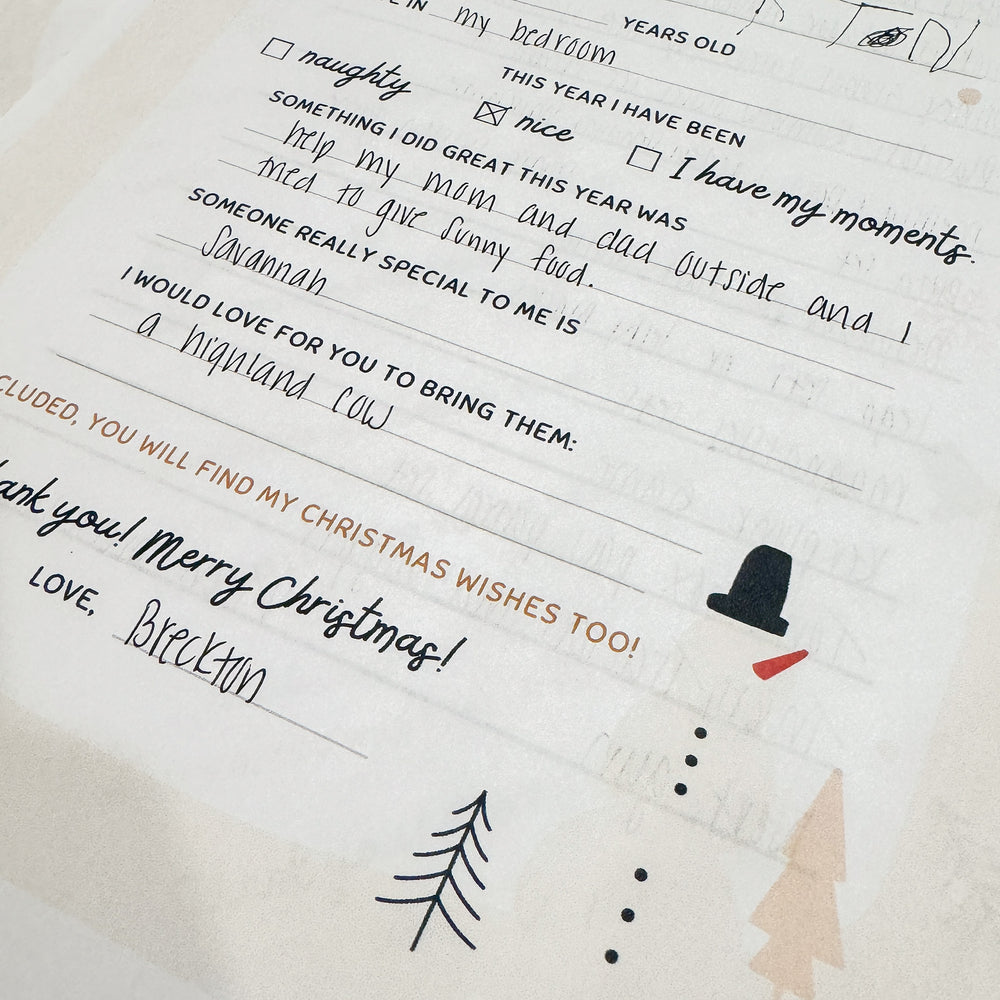 IN my bedroom
YEARS OLD
THIS YEAR I HAVE BEEN
naughty
nice
I have my moments.
SOMETHING I DID GREAT THIS YEAR WAS
help my mom and dad outside and I
tried to give Sunny food.
SOMEONE REALLY SPECIAL TO ME IS
Savannah
I WOULD LOVE FOR YOU TO BRING THEM:
a highland cow
CLUDED, YOU WILL FIND MY CHRISTMAS WISHES TOO!
ank you! Merry Christmas!
LOVE,
Breckton